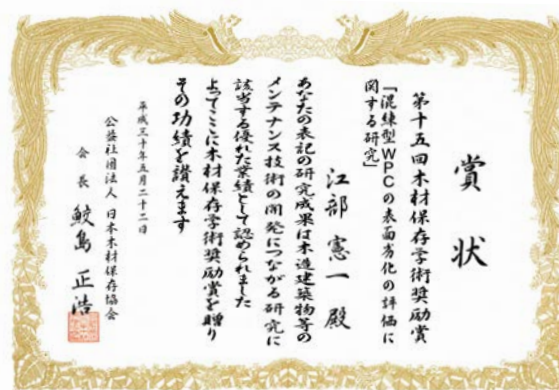 賞状
第十五回木材保存学術奨励賞
「混練型WPCの表面劣化の評価に
関する研究」
江部憲一殿
あなたの表記の研究成果は木造建築物等の
メンテナンス技術の開発につながる研究に
該当する優れた業績として認められました
よってここに木材保存学術奨励賞を贈り
その功績を讃えます
平成三十年五月二十二日
公益社団法人日本木材保存協会
会長鮫島正浩